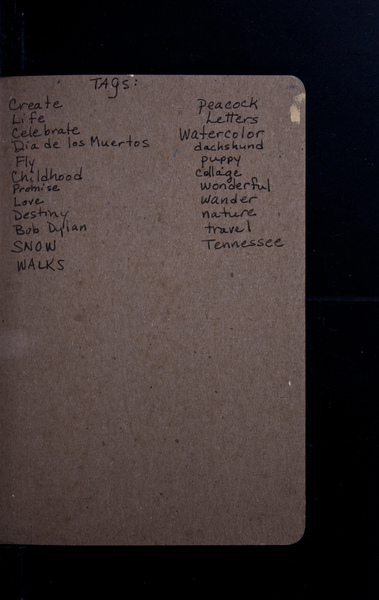 TAgs:
Create
Life
Celebrate
Dia de los Muertos
Fly
Childhood
Promise
Love
Destiny
Bob Dylan
SNOW
WALKS
Peacock
Letters
Watercolor
dachshund
puppy
collage
wonderful
wander
nature
travel
Tennessee